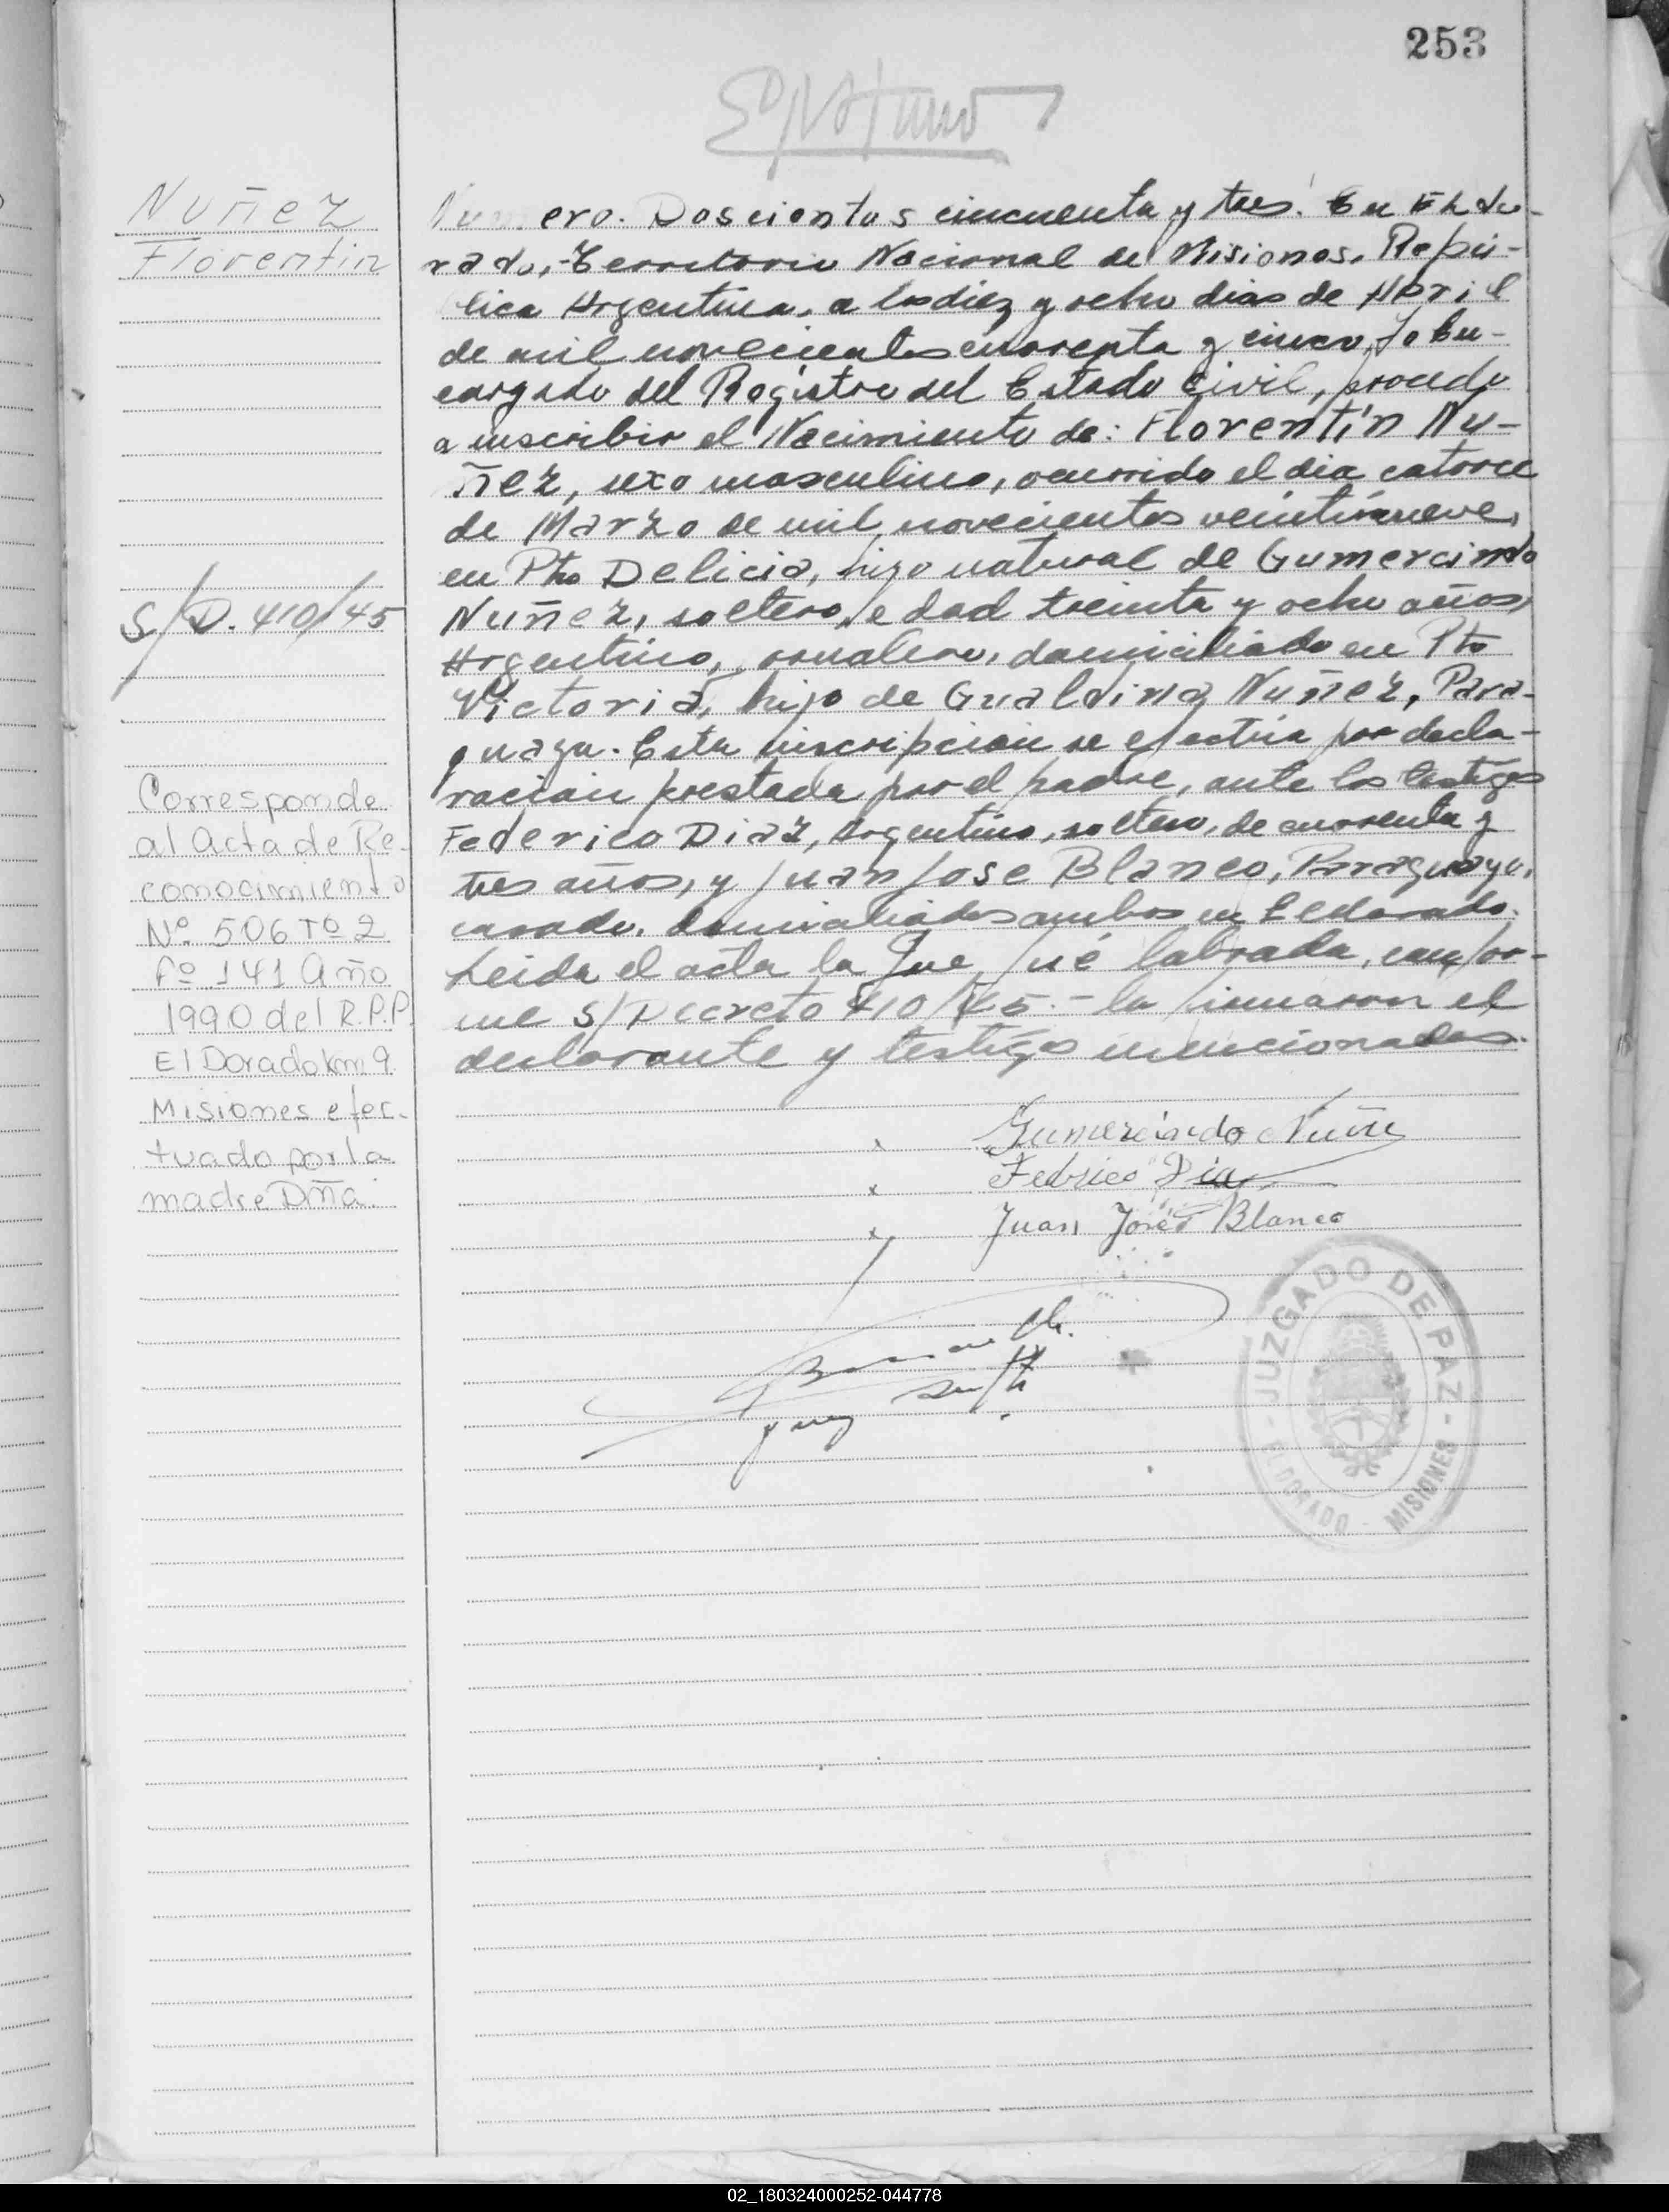 253
Nuñez
Florentin
S/D. 410/45
Corresponde
al Acta de Re-
conocimiento
Nº 506 Tº 2
Fº 141 Año
1990 del R.P.P.
El Dorado km 9
Misiones efec-
tuado por la
madre Dña.
Numero. Doscientos cincuenta y tres. En Eldo-
rado, Territorio Nacional de Misiones, Repú-
blica Argentina, a los diez y ocho dias de Abril
de mil novecientos cuarenta y cinco, Yo En-
cargado del Registro del Estado Civil, procedo
a inscribir el Nacimiento de: Florentín Nu-
ñez, sexo masculino, ocurrido el dia catorce
de Marzo de mil novecientos veintinueve,
en Pto Delicia, hijo natural de Gumercindo
Nuñez, soltero, edad treinta y ocho años,
Argentino, jornalero, domiciliado en Pto
Victoria, hijo de Gualdina Nuñez, Para-
guaya. Esta inscripcion se efectúa por decla-
racion prestada por el padre, ante los testigos
Federico Diaz, Argentino, soltero, de cuarenta y
tres años, y Juan Jose Blanco, Paraguayo,
casado, domiciliados ambos en Eldorado.
Leida el acta la que fué labrada, confor-
me S/Decreto 410/45.- la firmaron el
declarante y testigos mencionados.
Gumercindo Nuñe
Fedrico Diaz
Juan José Blanco
JUZGADO DE PAZ
- ELDORADO - MISIONES -
02_180324000252-044778